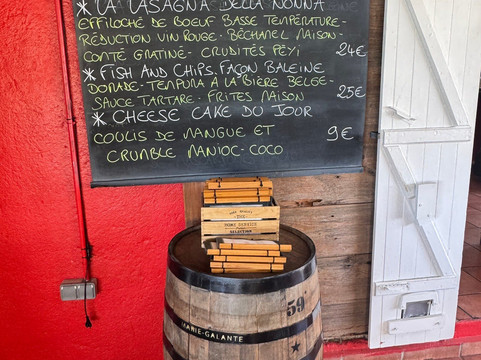 * LA LASAGNA DELLA NONNA
EFFILOCHÉ DE BOEUF BASSE TEMPÉRATURE-
RÉDUCTION VIN ROUGE. BÉCHAMEL MAISON-
COMTÉ GRATINÉ- CRUDITÉS PÉYI 24€
* FISH AND CHIPS. FAÇON BALEINE
DORADE-TEMPURA À LA BIÈRE BELGE-
SAUCE TARTARE- FRITES MAISON 25€
* CHEESE CAKE DU JOUR
COULIS DE MANGUE ET 9€
CRUMBLE MANIOC-COCO
HOME SERVICE
SELECTION
59
MARIE-GALANTE